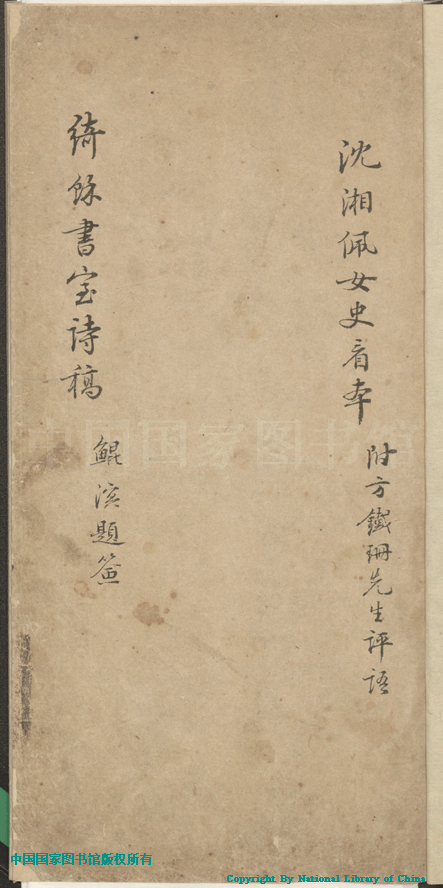 沈湘佩女史看本
附方鐵珊先生評語
綺餘書室詩稿
鯤溟題簽
中国国家图书馆
中国国家图书馆版权所有
Copyright By National Library of China